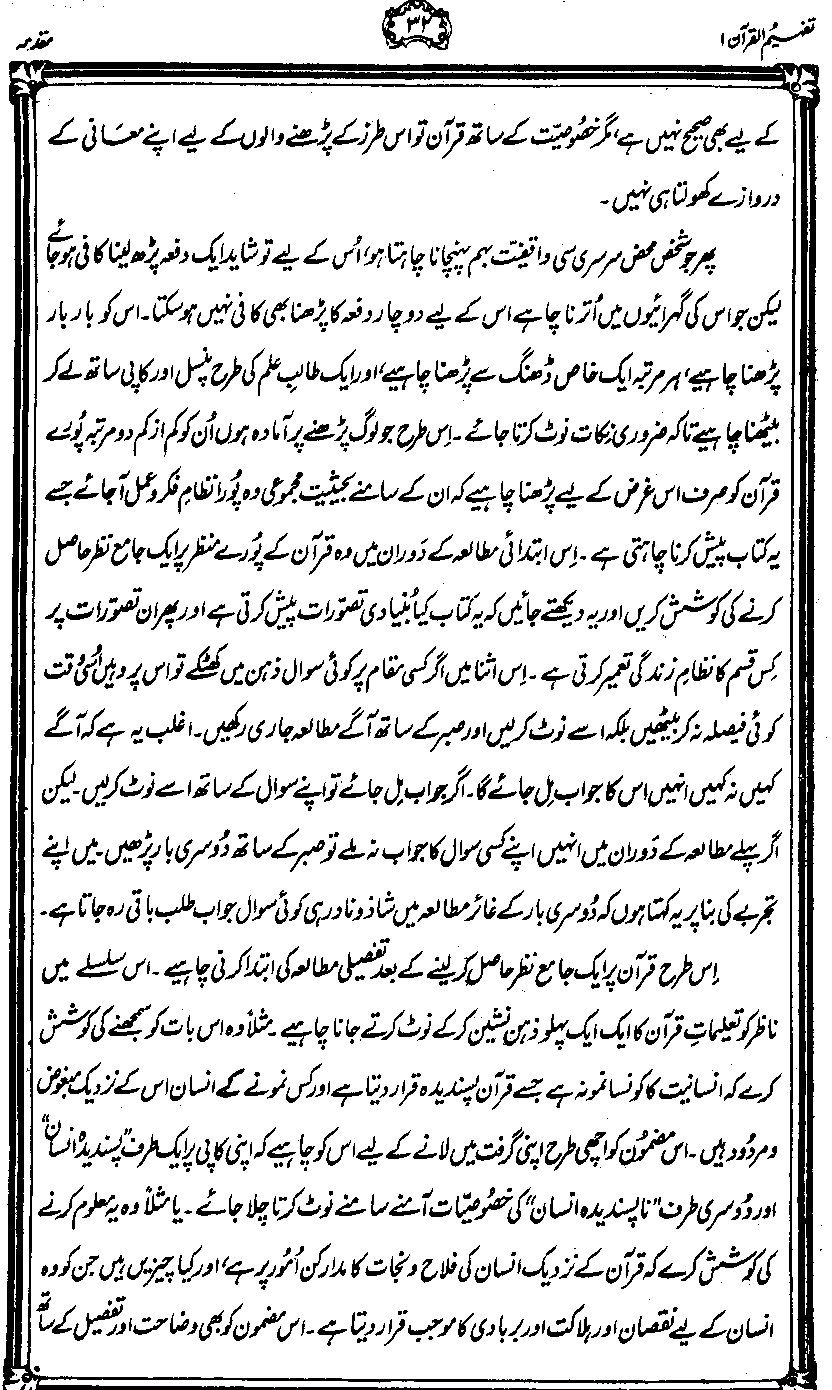 تفہیم القرآن ۱
۳۲
مقدمہ
کے لیے بھی صحیح نہیں ہے، مگر خصُوصیّت کے ساتھ قرآن تو اس طرز کے پڑھنے والوں کے لیے اپنے معانی کے
دروازے کھولتا ہی نہیں۔
پھر جو شخص محض سرسری سی واقفیّت بہم پہنچانا چاہتا ہو، اُس کے لیے تو شاید ایک دفعہ پڑھ لینا کافی ہو جائے
لیکن جو اس کی گہرائیوں میں اُترنا چاہے اس کے لیے دو چار دفعہ کا پڑھنا بھی کافی نہیں ہو سکتا۔ اس کو بار بار
پڑھنا چاہیے، ہر مرتبہ ایک خاص ڈھنگ سے پڑھنا چاہیے، اور ایک طالبِ علم کی طرح پنسل اور کاپی ساتھ لے کر
بیٹھنا چاہیے تاکہ ضروری نِکات نوٹ کرتا جائے۔ اِس طرح جو لوگ پڑھنے پر آمادہ ہوں اُن کو کم از کم دو مرتبہ پُورے
قرآن کو صرف اس غرض کے لیے پڑھنا چاہیے کہ ان کے سامنے بحیثیت مجموعی وہ پُورا نظامِ فکر و عمل آ جائے جسے
یہ کتاب پیش کرنا چاہتی ہے۔ اِس ابتدائی مطالعہ کے دَوران میں وہ قرآن کے پُورے منظر پر ایک جامع نظر حاصل
کرنے کی کوشش کریں اور یہ دیکھتے جائیں کہ یہ کتاب کیا بُنیادی تصوّرات پیش کرتی ہے اور پھر ان تصوّرات پر
کِس قسم کا نظامِ زندگی تعمیر کرتی ہے۔ اِس اثنا میں اگر کسی مقام پر کوئی سوال ذہن میں کھٹکے تو اس پر وہیں اُسی وقت
کوئی فیصلہ نہ کر بیٹھیں بلکہ اسے نوٹ کر لیں اور صبر کے ساتھ آگے مطالعہ جاری رکھیں۔ اغلب یہ ہے کہ آگے
کہیں نہ کہیں انہیں اس کا جواب مِل جائے گا۔ اگر جواب مِل جائے تو اپنے سوال کے ساتھ اسے نوٹ کر لیں۔ لیکن
اگر پہلے مطالعہ کے دَوران میں انہیں اپنے کسی سوال کا جواب نہ ملے تو صبر کے ساتھ دُوسری بار پڑھیں۔ میں اپنے
تجربے کی بنا پر یہ کہتا ہوں کہ دُوسری بار کے غائر مطالعہ میں شاذ و نادر ہی کوئی سوال جواب طلب باقی رہ جاتا ہے۔
اِس طرح قرآن پر ایک جامع نظر حاصل کر لینے کے بعد تفصیلی مطالعہ کی ابتدا کرنی چاہیے۔ اس سلسلے میں
ناظر کو تعلیماتِ قرآن کا ایک ایک پہلو ذہن نشین کر کے نوٹ کرتے جانا چاہیے۔ مثلاً وہ اس بات کو سمجھنے کی کوشش
کرے کہ انسانیت کا کونسا نمونہ ہے جسے قرآن پسندیدہ قرار دیتا ہے اور کس نمونے کے انسان اس کے نزدیک مبغوض
و مردُود ہیں۔ اس مضمُون کو اچھی طرح اپنی گرفت میں لانے کے لیے اس کو چاہیے کہ اپنی کاپی پر ایک طرف ”پسندیدہ انسان“
اور دُوسری طرف ”ناپسندیدہ انسان“ کی خصُوصیّات آمنے سامنے نوٹ کرتا چلا جائے۔ یا مثلاً وہ یہ معلوم کرنے
کی کوشش کرے کہ قرآن کے نزدیک انسان کی فلاح و نجات کا مدار کن اُمُور پر ہے، اور کیا چیزیں ہیں جن کو وہ
انسان کے لیے نقصان اور ہلاکت اور بربادی کا موجب قرار دیتا ہے۔ اس مضمون کو بھی وضاحت اور تفصیل کے ساتھ